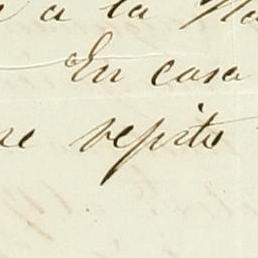 a la
En casa
repito